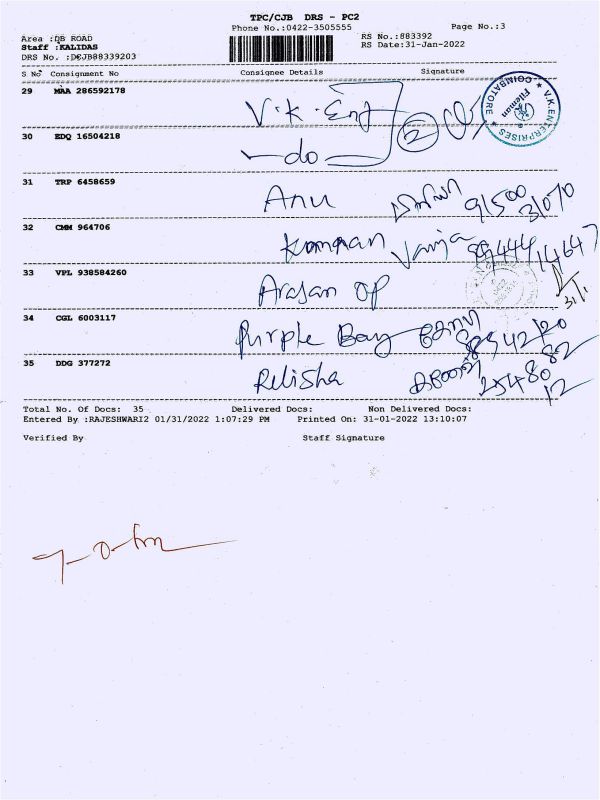 TPC/CJB DRS - PC2
Phone No.:0422-3505555 Page No.:3
Area :DB ROAD RS No.:883392
Staff :KALIDAS RS Date:31-Jan-2022
DRS No. :DCJB88339203
S No Consignment No Consignee Details Signature
29 MAA 286592178 V.K. Ent
V.K. ENTERPRISES
COIMBATORE
30 EDQ 16504218 -do- 2
31 TRP 6458659 Anu 91500 31070
32 CMM 964706 Kannan Vanja
33 VPL 938584260 Arasan OP 31/1
34 CGL 6003117 Purple Bay
35 DDG 377272 Relisha 25480 12
Total No. Of Docs: 35 Delivered Docs: Non Delivered Docs:
Entered By :RAJESHWARI2 01/31/2022 1:07:29 PM Printed On: 31-01-2022 13:10:07
Verified By Staff Signature